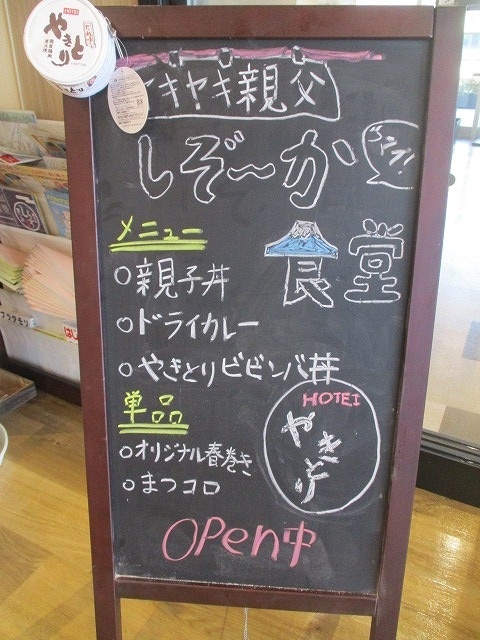 HOTEI
やきとり
イキヤキ親父
しぞ〜か
食堂
メニュー
○親子丼
○ドライカレー
○やきとりビビンバ丼
単品
○オリジナル春巻き
○まつコロ
HOTEI
やきとり
OPen中